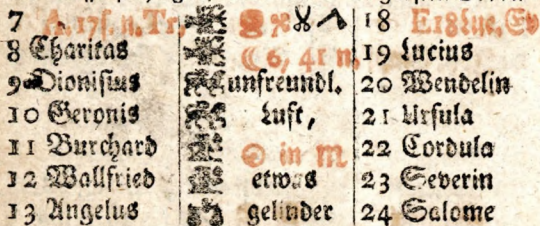 7 A. 17. s. n. Tr. 18 E 18 Luc. Ev
8 Charitas ☾ 6, 41 n. 19 Lucius
9 Dionisius unfreundl. 20 Wendelin
10 Geronis Luft, 21 Ursula
11 Burchard ☉ in ♏ 22 Cordula
12 Wallfried etwas 23 Severin
13 Angelus gelinder 24 Salome